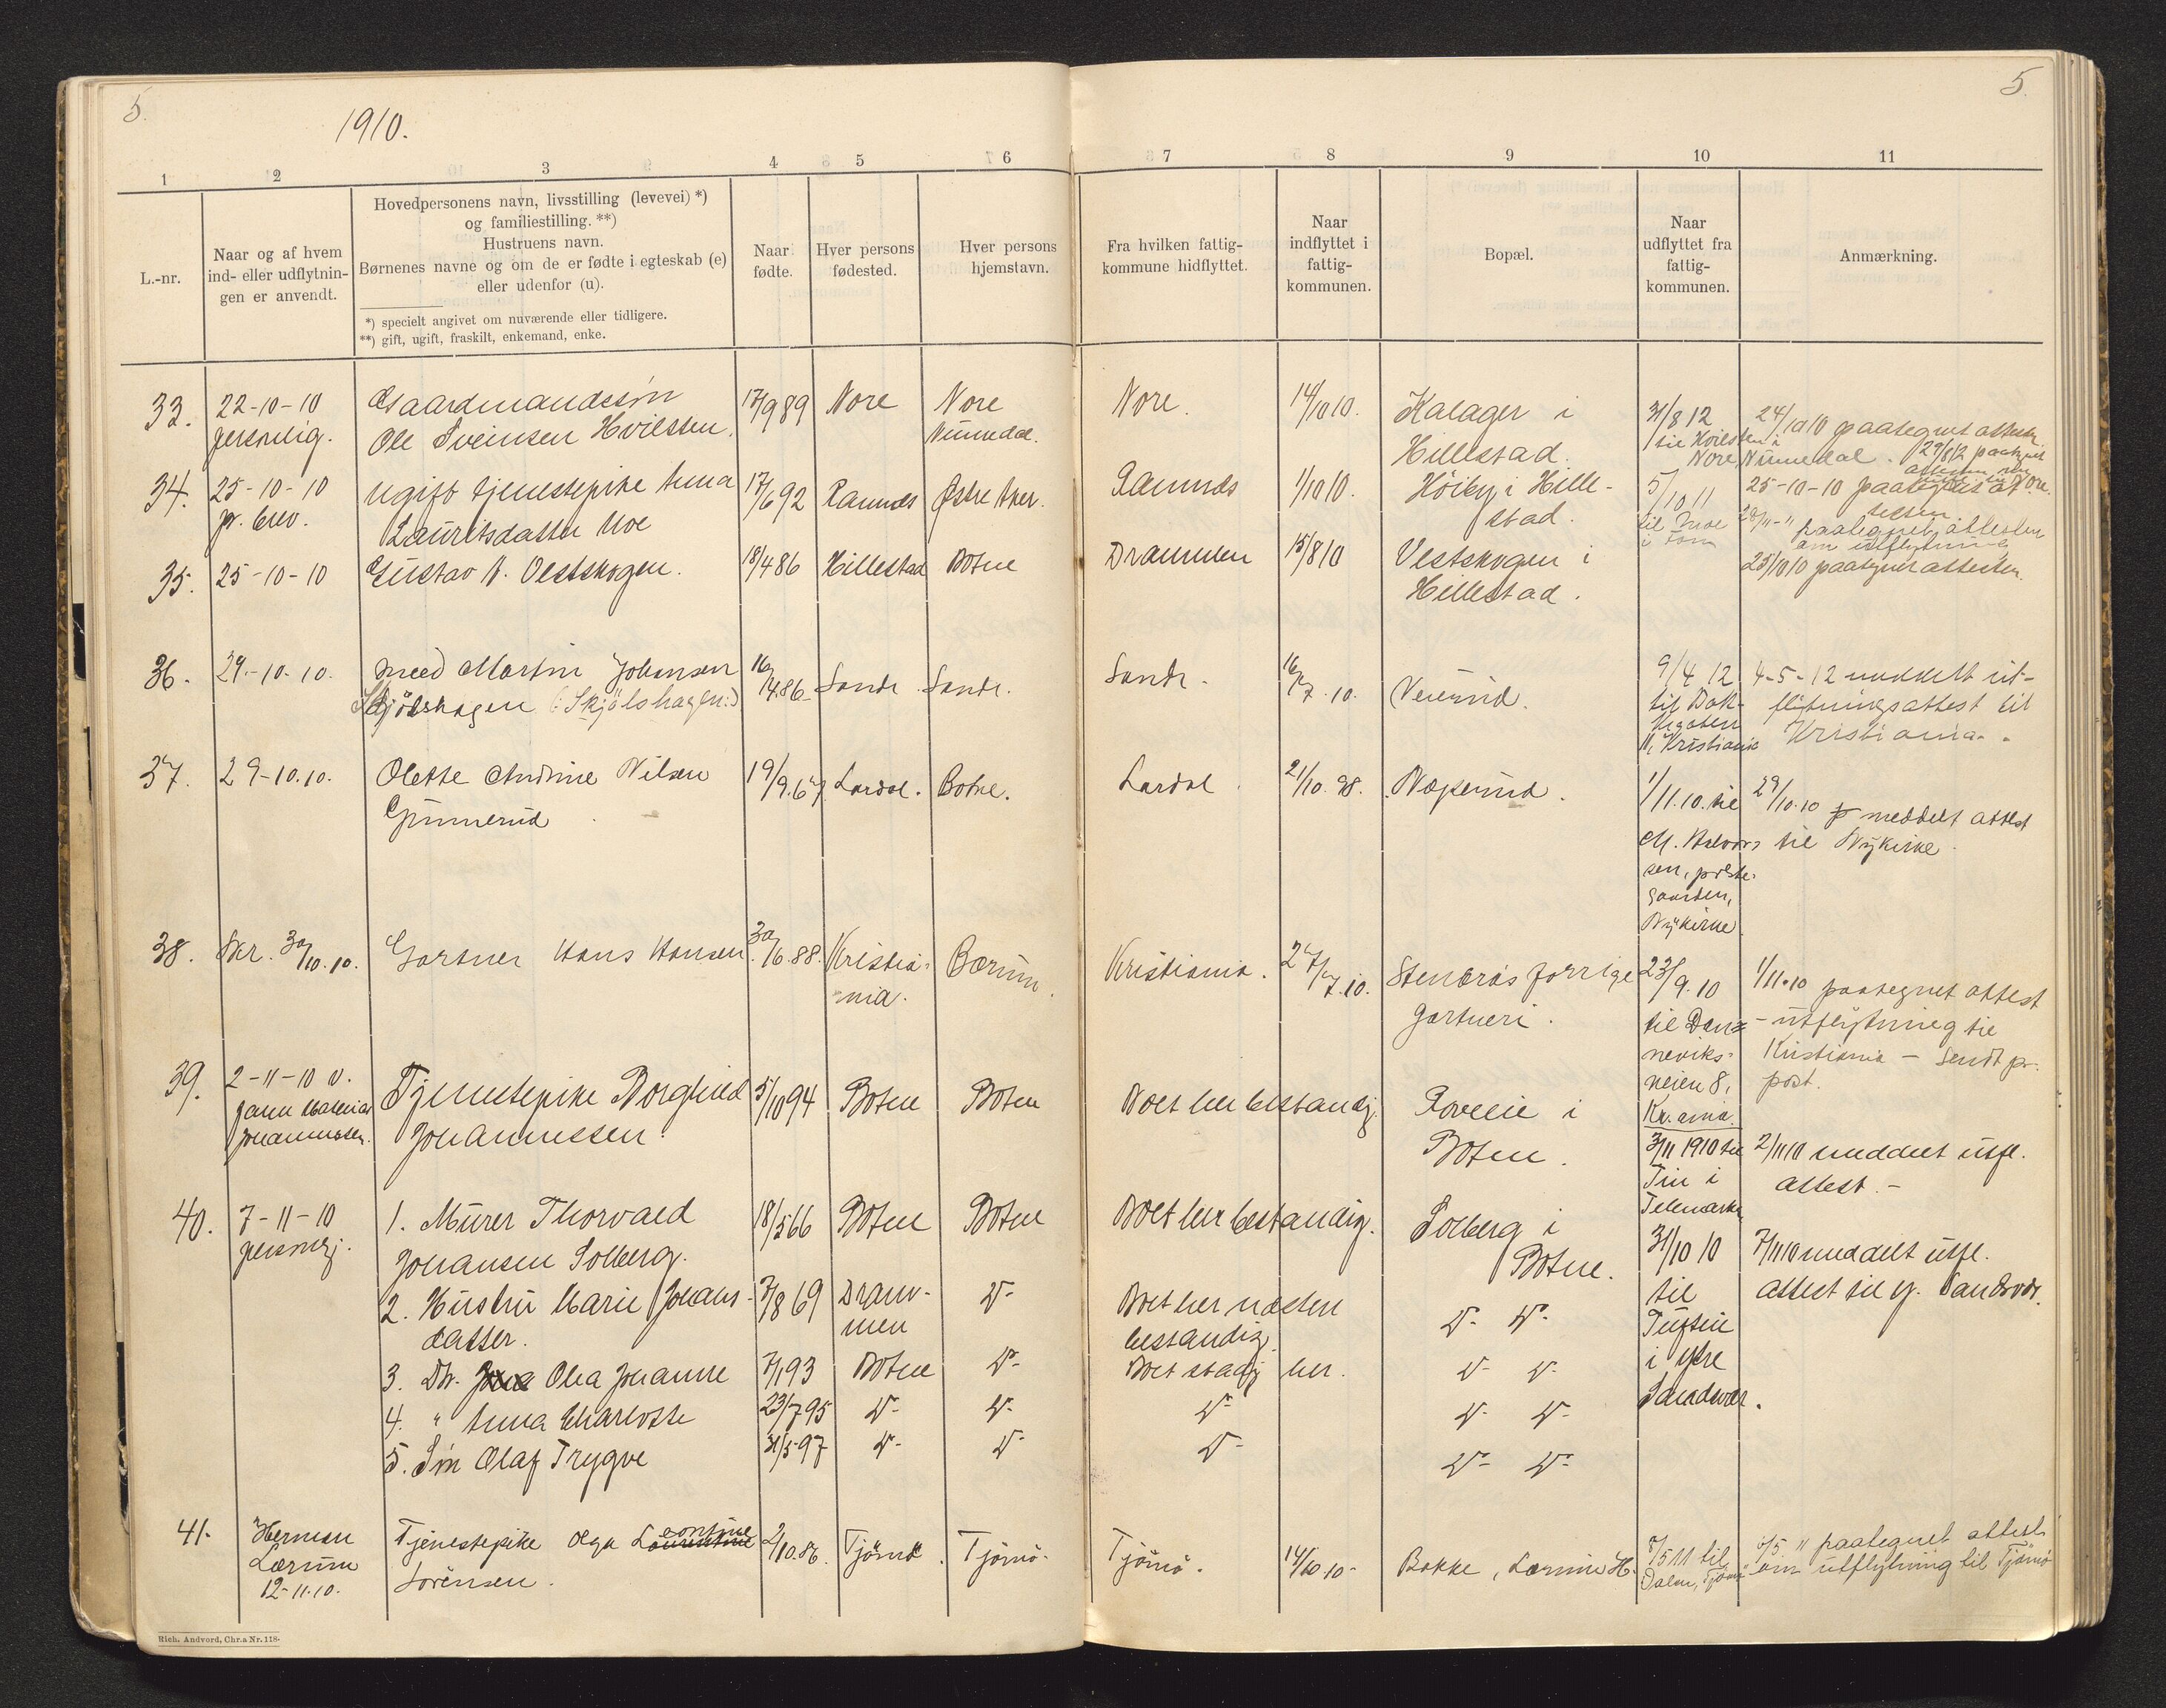 5.
1910.
5.
1
2
3
4
5
6
7
8
9
10
11
L.-nr.
Naar og af hvem
ind- eller udflytnin-
gen er anvendt.
Hovedpersonens navn, livsstilling (levevei) *)
og familiestilling. **)
Hustruens navn.
Børnenes navne og om de er fødte i egteskab (e)
eller udenfor (u).
*) specielt angivet om nuværende eller tidligere.
**) gift, ugift, fraskilt, enkemand, enke.
Naar
fødte.
Hver persons
fødested.
Hver persons
hjemstavn.
Fra hvilken fattig-
kommune hidflyttet.
Naar
indflyttet i
fattig-
kommunen.
Bopæl.
Naar
udflyttet fra
fattig-
kommunen.
Anmærkning.
33.
22-10-10
personlig.
Gaardmandssøn
Ole Sveinsen Hvilsten.
17/9 89
Nore
Nore
Numedal.
Nore.
14/10 10.
Kalager i
Hillestad.
31/8 12
til Hvilsten i
Nore, Numedal.
24/10 10 paategnet attesten.
29/8 12 paategnet
34.
25-10-10
pr. brev.
Ugift tjenestepike Anna
Lauritsdatter Moe
17/6 92
Ramnes
Østre Aker.
Ramnes
1/10 10.
Höiby i Hille-
stad.
5/10 11
til Moe
25-10-10 paategnet at-
testen.
paategnet attesten
om utflytning
35.
25-10-10
Gustav N. Vestskogen.
18/4 86
Hillestad
Botne
Drammen
15/8 10
Vestskogen i
Hillestad.
25/10 10 paategnet attesten.
36.
29.-10.10.
Smed Martin Johansen
Skjölshagen (: Skjölshagen:)
16/1 4.86.
Sande.
Sande.
Sande.
16/7.10.
9/4 12
til
Kristiania
4-5-12 meddelt ut-
flytningsattest til
Kristiania.
37.
29-10.10.
Olette Andrine Nilsen
Gunnerud
19/9.67.
Lardal.
Botne.
Lardal.
21/10.98.
1/11.10. til
M. Halvor-
sen, preste-
gaarden,
Nykirke.
29/10.10 meddelt attest
til Nykirke.
38.
Skr. 30/10.10.
Gartner Hans Hansen.
30/6.88.
Kristia-
nia.
Bærum.
Kristiania.
27/7.10.
Stenbrås forrige
gartneri.
23/9.10
til Dan-
neviks-
veien 8,
Kr.ania.
1/11.10 paategnet attest
- utflytning til
Kristiania - Sendt pr.
post.
39.
2-11-10 v.
Johannessen.
Tjenestepike Borghild
Johannessen.
5/10 94
Botne
Botne
Boet her bestandig.
Rovelie i
Botne.
3/11 1910 til
Tin i
Telemarken
2/11 10 meddelt utfl.
attest.-
40.
7-11-10
personlig.
1. Murer Thorvald
Johansen Solberg.
18/5 66
Botne
Botne
Boet her bestandig.
Solberg i
Botne.
31/10 10
til
Tufsin
i Ytre
Sandsvær.
7/11 10 meddelt utfl.
attest til Y. Sandsvær.
2. Hustru Marie Johans-
datter.
7/8 69
Dram-
men
D-
Boet her næsten
bestandig.
D- D-
3. Dtr. Olea Johanne
7/1 93
Botne
D-
Boet stadig her.
D- D-
4. " Anna Charlotte
23/7 95
D-
D-
D-
D- D-
5. Søn Olaf Trygve
31/5 97
D-
D-
D-
D- D-
41.
Herman
Lærum
12-11.10.
Tjenestepike Olga Leontine
Sørensen.
2/10.86.
Tjömö.
Tjömö.
Tjömö.
14/10 10-
Bakke, Lærum H.
5/5 11 til
Dalen, Tjömö
5/5 11 paategnet attest
om utflytning til Tjömö
Rich. Andvord, Chr.a Nr. 118.